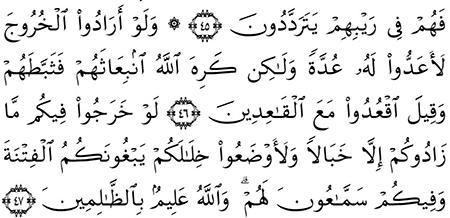 فَهُمْ فِى رَيْبِهِمْ يَتَرَدَّدُونَ ﴿٤٥﴾ ۞ وَلَوْ أَرَادُوا۟ ٱلْخُرُوجَ
لَأَعَدُّوا۟ لَهُۥ عُدَّةً وَلَـٰكِن كَرِهَ ٱللَّهُ ٱنۢبِعَاثَهُمْ فَثَبَّطَهُمْ
وَقِيلَ ٱقْعُدُوا۟ مَعَ ٱلْقَـٰعِدِينَ ﴿٤٦﴾ لَوْ خَرَجُوا۟ فِيكُم مَّا
زَادُوكُمْ إِلَّا خَبَالًا وَلَأَوْضَعُوا۟ خِلَـٰلَكُمْ يَبْغُونَكُمُ ٱلْفِتْنَةَ
وَفِيكُمْ سَمَّـٰعُونَ لَهُمْ ۗ وَٱللَّهُ عَلِيمٌۢ بِٱلظَّـٰلِمِينَ ﴿٤٧﴾